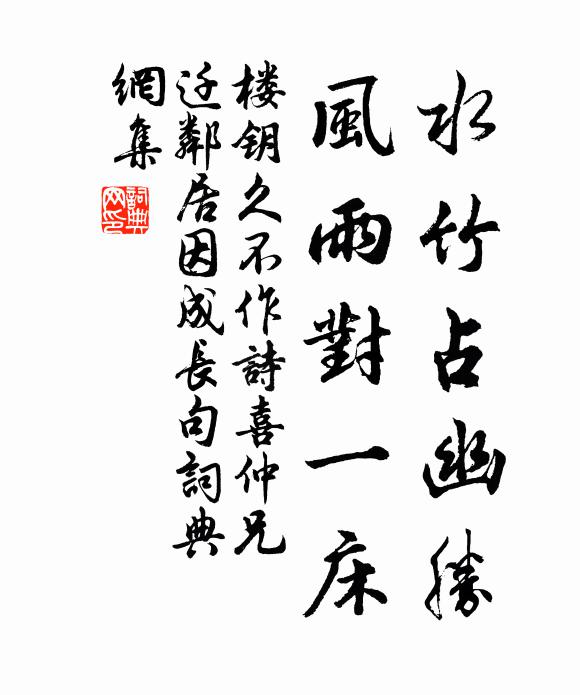 水竹占幽勝
風雨對一床
楼钥久不作詩喜仲兄
迁鄰居因成長句詞典
網集
詞典网印